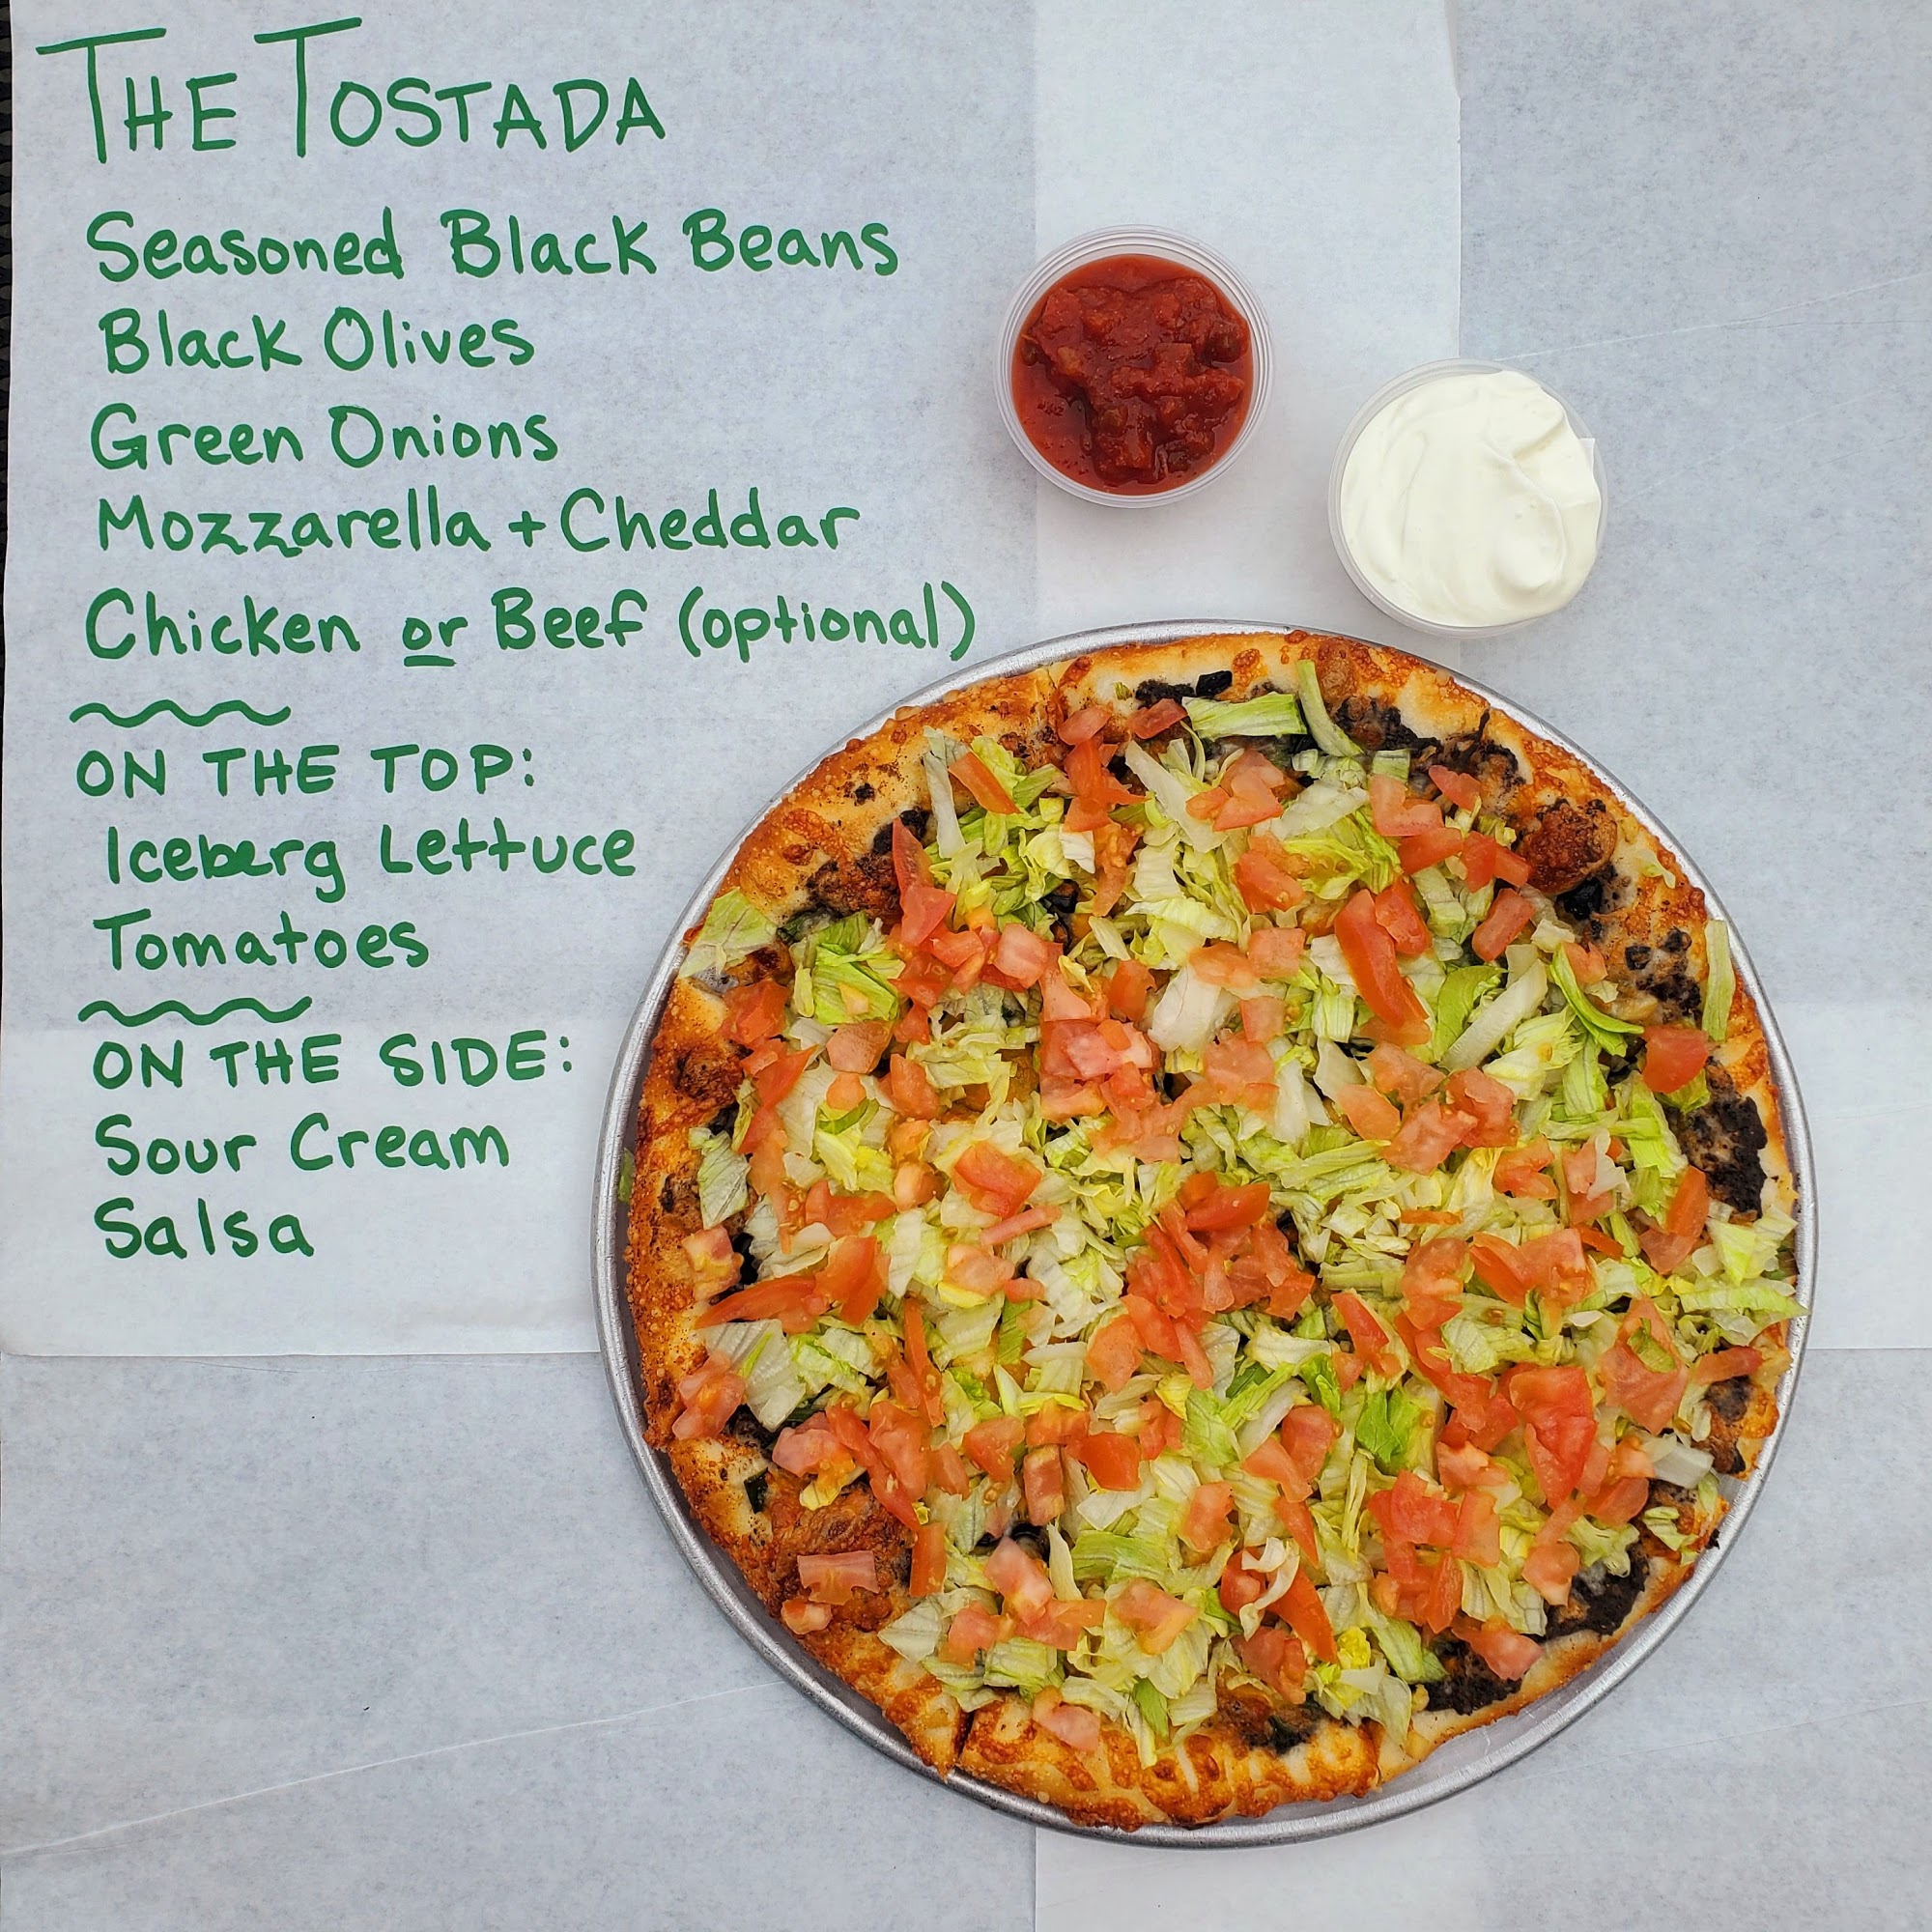 THE TOSTADA
Seasoned Black Beans
Black Olives
Green Onions
Mozzarella + Cheddar
Chicken or Beef (optional)
ON THE TOP:
Iceberg Lettuce
Tomatoes
ON THE SIDE:
Sour Cream
Salsa